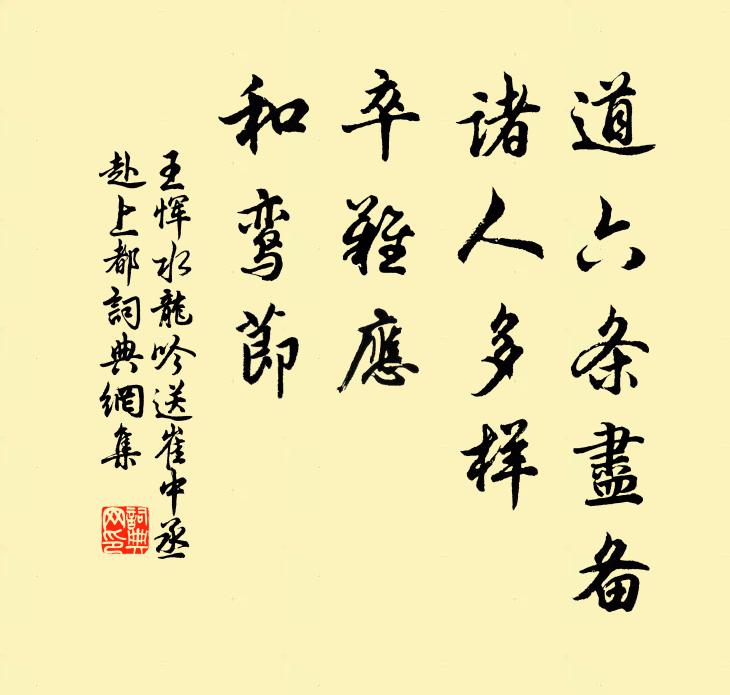 道六条盡备
诸人多样
卒難應
和鸾節
王恽水龍吟送崔中丞
赴上都詞典網集
詞典网印